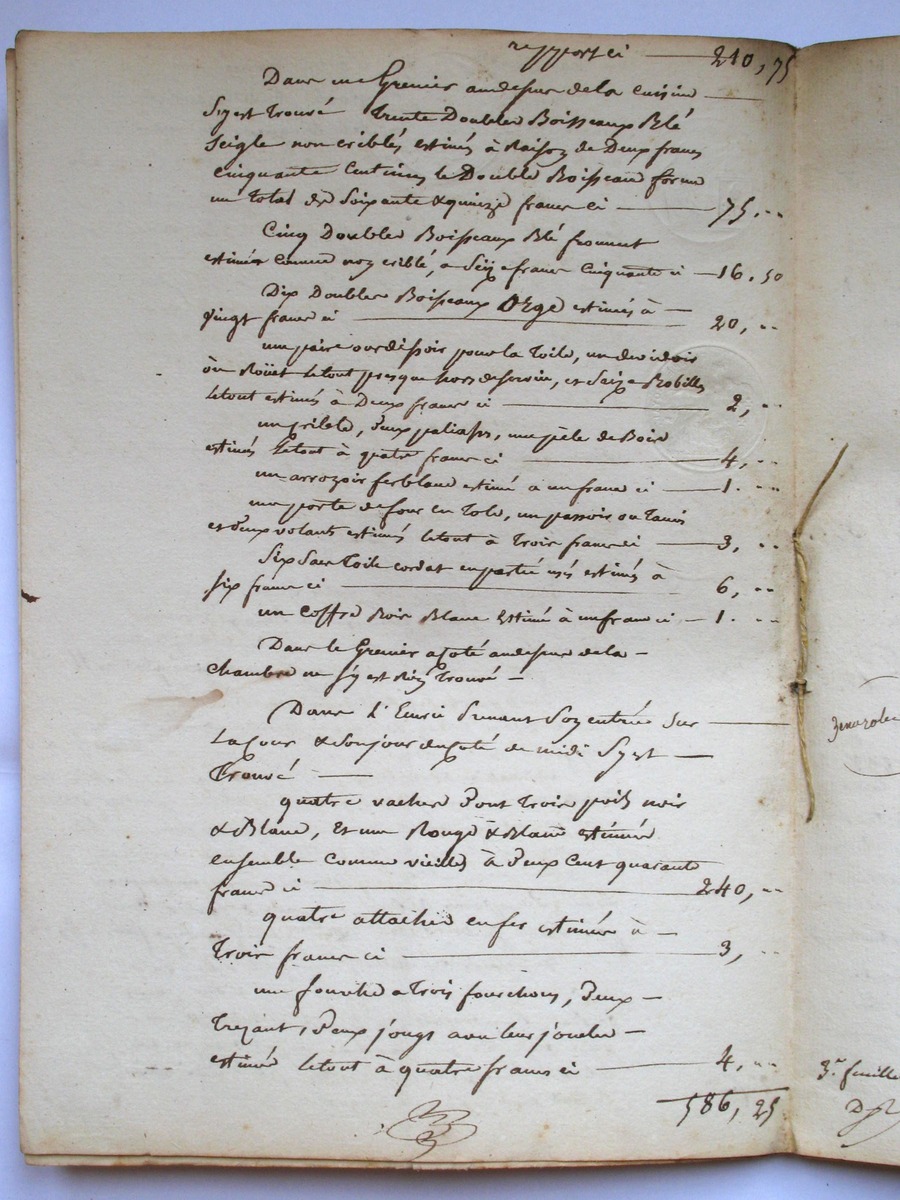 report ci — 210, 75
Dans un Grenier audessus dela cuisine —
S'y est Trouvé Trente Doubles Boisseaux Blé
Seigle non criblés estimés à Raison de Deux francs
cinquante Centimes le Double Boisseau forme
un Total de Soixante & quinze francs ci — 75. "
Cinq Doubles Boisseaux Blé froment
estimés comme non criblé, a Seize francs Cinquante ci — 16, 50
Dix Doubles Boisseaux Orge estimés à —
Vingt francs ci — 20, "
une paire ourdissoir pour la Toile, un devidoir
un Roüet letout presque hors deservice, et Seize Bobilles
letout estimés à Deux francs ci — 2, "
un crible, Deux paliasses, une pèle de Bois
estimés letout à quatre francs ci — 4, "
un arrozoir ferblanc estimé a un franc ci — 1. "
une porte de four en Tole, un passoir ou Tamis
et Deux volants estimés letout à Trois francs ci — 3, "
Six Sacs Toile cordat en partie usés estimés à
six francs ci — 6, "
un Coffre Bois Blanc estimé à un franc ci — 1. "
Dans le Grenier acoté audessus dela —
Chambre ne s'y est Rien Trouvé —
Dans l'Ecurie Prenant Son entrée Sur —
La cour & Son jour du coté de midi S'y est —
Trouvé —
quatre vaches Dont Trois poils noir
& Blanc, Et une Rouge & Blanc estimées
ensemble comme vieilles à Deux Cent quarante
francs ci — 240, "
quatre attaches en fer estimées à —
Trois francs ci — 3, "
une fourche a Trois fourchons, Deux —
Trezant, Deux jougs avec leurs joucles —
estimés letout à quatre francs ci — 4, "
586, 25
3e. feuille